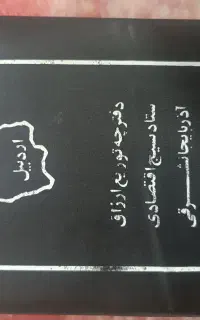 دفترچه توزیع ارزاق
ستاد بسیج اقتصادی
آذربایجانشرقی
اردبیل